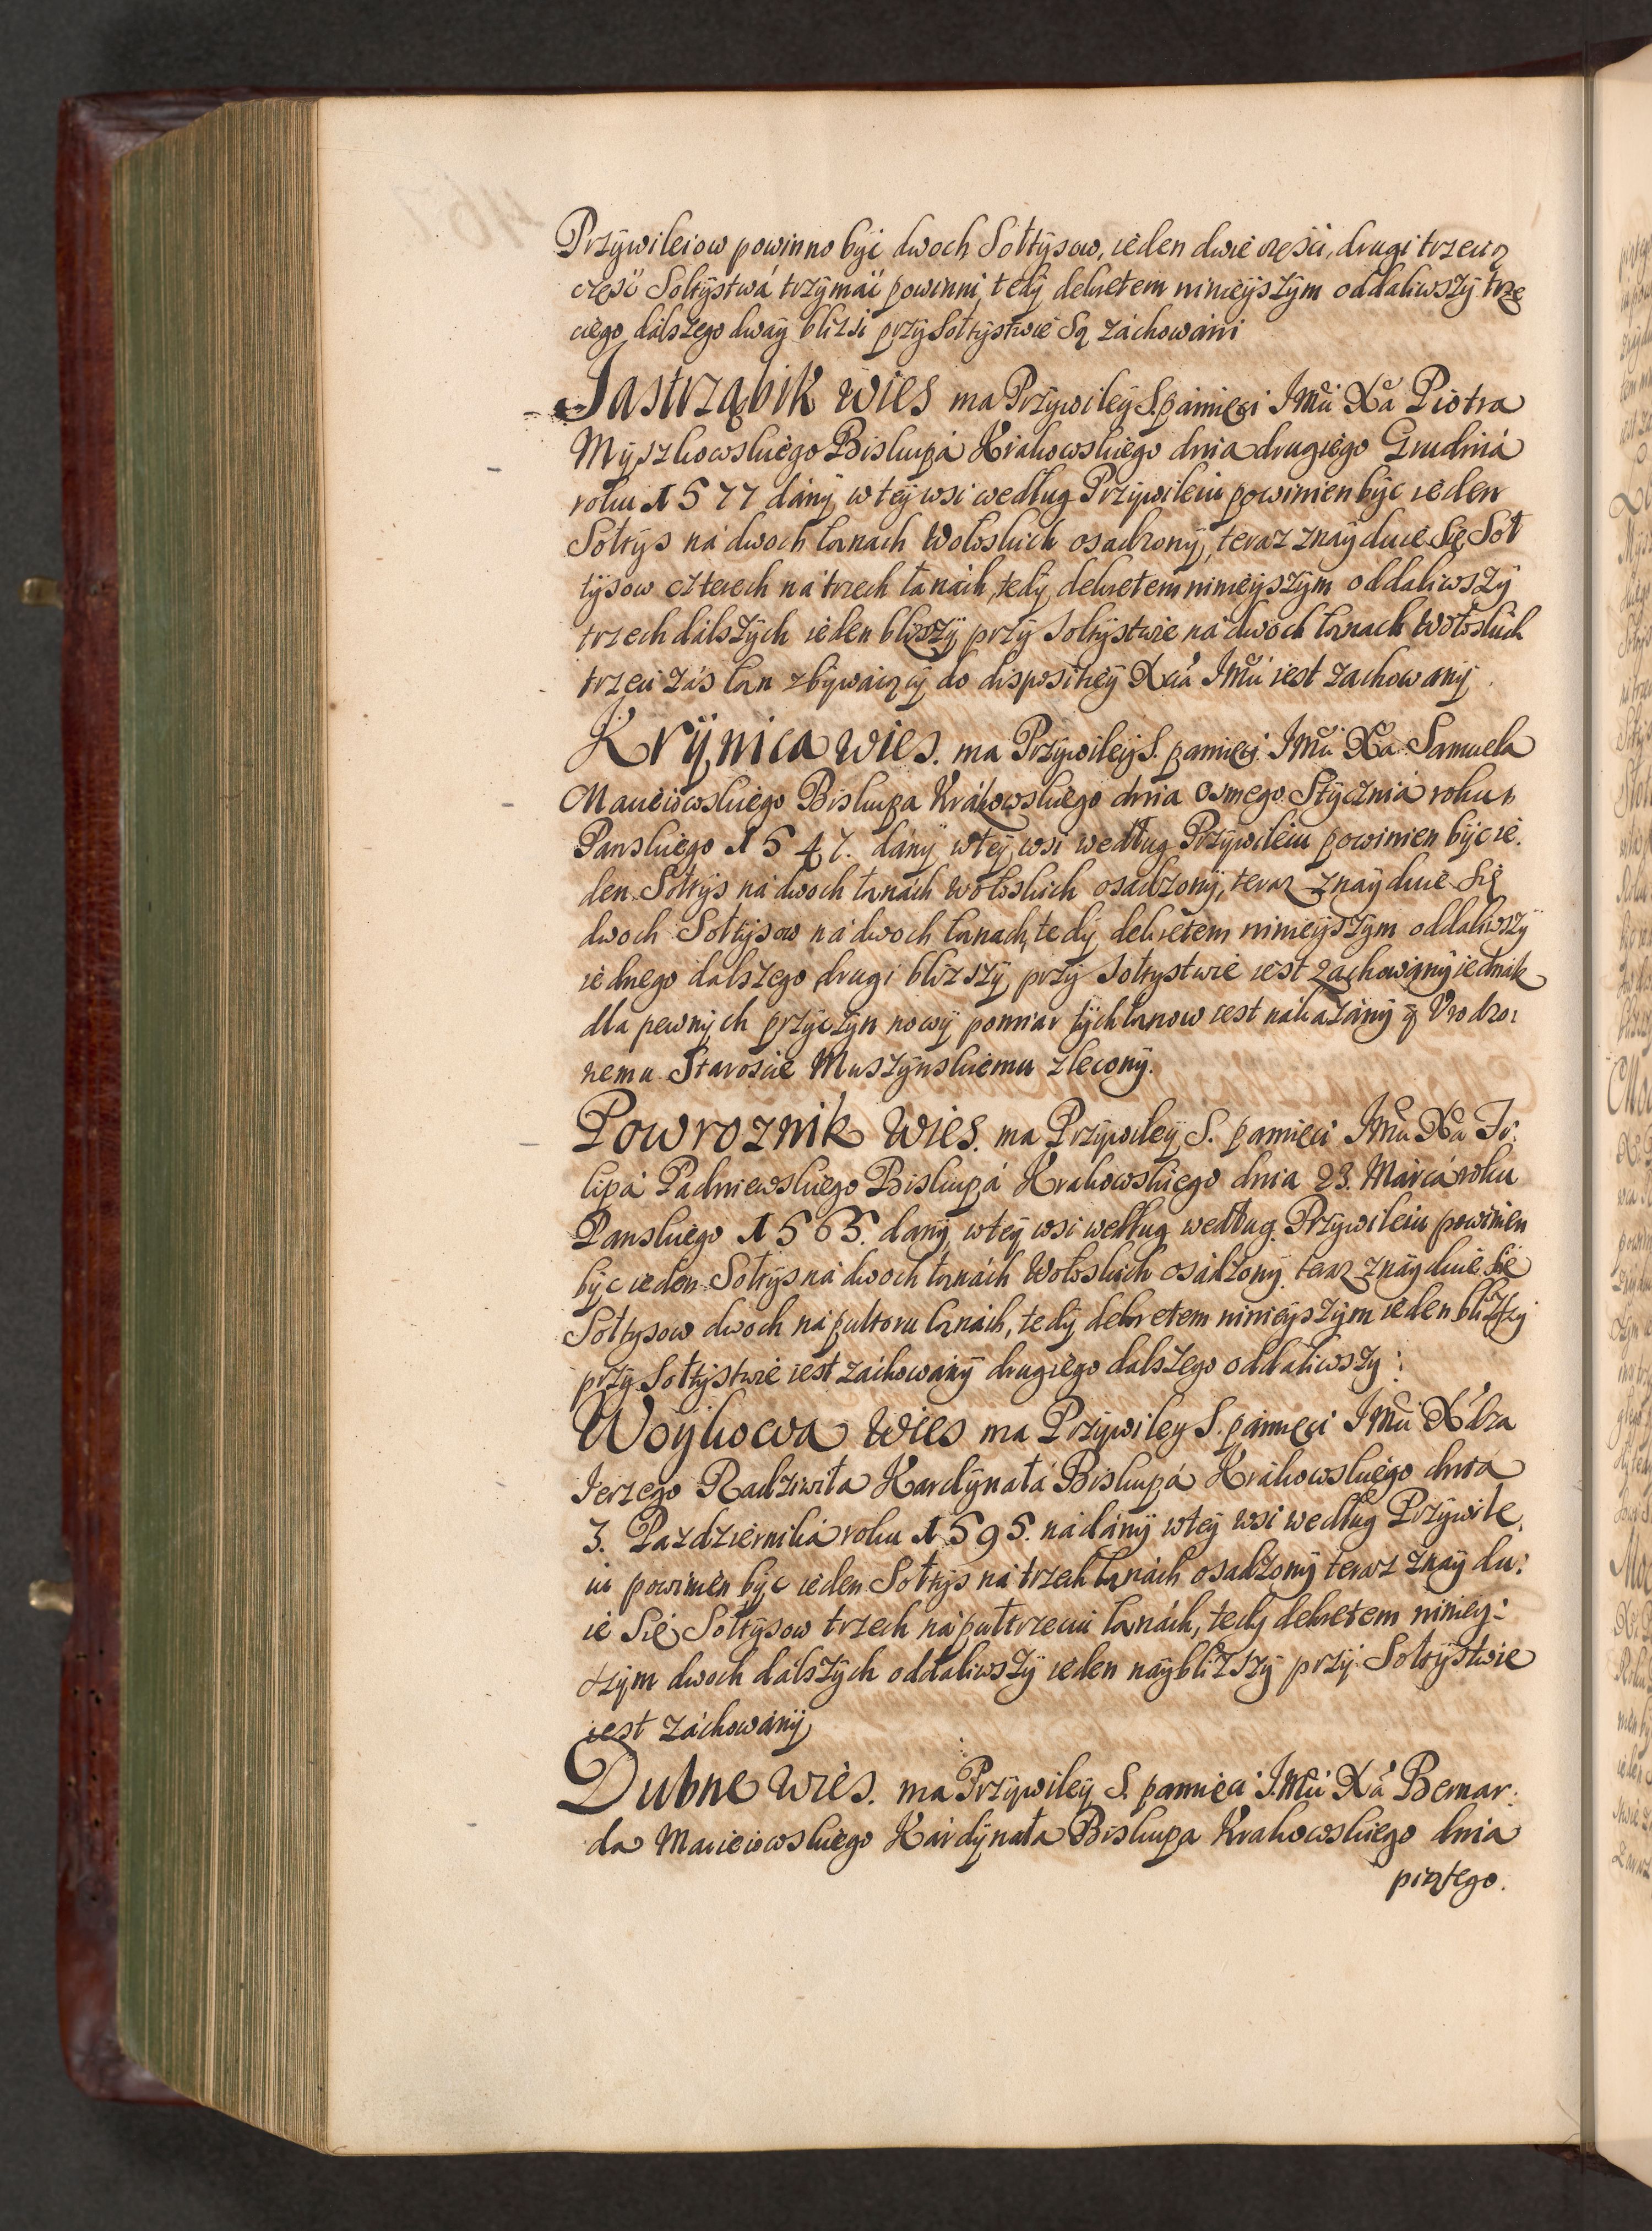 Przywileiow powinno być dwoch Sołtysow, ieden dwie części, drugi trzecią
częsć Sołtystwá trzymáć powinni, tedy dekretem ninieyszym oddaliwszy trze
ciego dálszego dway bliżsi przy Sołtystwie są záchowáni
Jastrząbik wies ma Przywiley S. pámięci JMci Xa Piotra
Myszkowskiego Biskupá Krákowskiego dnia drugiego Grudniá
roku 1577 dány, w tey wsi według Przywileiu powinien być ieden
Sołtys ná dwoch łanach Wołoskich osadzony, teraz znayduie się Soł
tysow czterech ná trzech łanách, tedy dekretem ninieyszym oddaliwszy
trzech dálszych ieden bliższy przy Sołtystwie ná dwoch łanach Wołoskich
trzeci záś łan zbywaiący do dispositiey Xcia JMci iest záchowány
Krynica wies. ma Przywiley S. pamięci JMci Xa Samuela
Macieiowskiego Biskupa Krákowskiego dnia osmego Styczniá roku
Panskiego 1547. dány w tey wsi według Przywileiu powinien być ie.
den Sołtys ná dwoch łanách wołoskich osadzony, teraz znayduie się
dwoch Sołtysow ná dwoch łanach, tedy dekretem ninieyszym oddaliwszy
iednego dálszego drugi bliższy przy Sołtystwie iest záchowány iednák
dla pewnych przyczyn nowy pomiar tych łanow iest nákazány y Vrodzo:
nemu Staroscie Muszynskiemu zlecony.
Powroznik wies. ma Przywiley S. pamięci JMci Xa Fi:
lipá Padniewskiego Biskupá Krakowskiego dnia 23. Márcá roku
Panskiego 1565. dany, w tey wsi według według Przywileiu powinien
być ieden Sołtys ná dwoch łanách Wołoskich osádzony teraz znayduie się
Sołtysow dwoch ná pułtoru łanách, tedy dekretem ninieyszym ieden bliższy
przy Sołtystwie iest záchowány drugiego dalszego oddaliwszy:
Woykowa wies ma Przywiley S. pámięci JMci Xdza
Jerzego Radziwiła Kardynałá Biskupá Krákowskiego dnia
3. Pazdziernika roku 1595. nádány w tey wsi według Przywile,
iu powinien być ieden Sołtys ná trzech łanách osadzony teraz znaydu:
ie się Sołtysow trzech ná pułtrzeciu łanách, tedy dekretem niniey:
szym dwoch dálszych oddaliwszy ieden naybliższy przy Sołtystwie
iest záchowány,
Dubne wies. ma Przywiley S. pamięci JMci Xá Bernar:
da Macieiowskiego Kárdynała Biskupa Krakowskiego dnia
piątego.